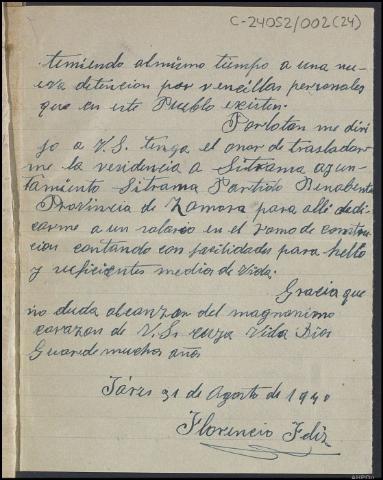 C-24052/002(24)
temiendo al mismo tiempo a una nu-
eva detencion por rencillas personales
que en este Pueblo existen.
Porlotan me diri
jo a V.S. tenga el onor de trasladar
me la residencia a Sitrama ayun-
tamiento Sitrama Partido Benabente
Provincia de Zamora para alli dedi-
carme a un salario en el ramo de construc
cion contando con facilidades para hello
y suficientes medios de vida.
Gracia que
no duda alcanzar del magnanimo
corazon de V.S. cuya Vida Dios
Guarde muchos años
31 de Agosto de 1940
Florencio Feliz
AHPOu